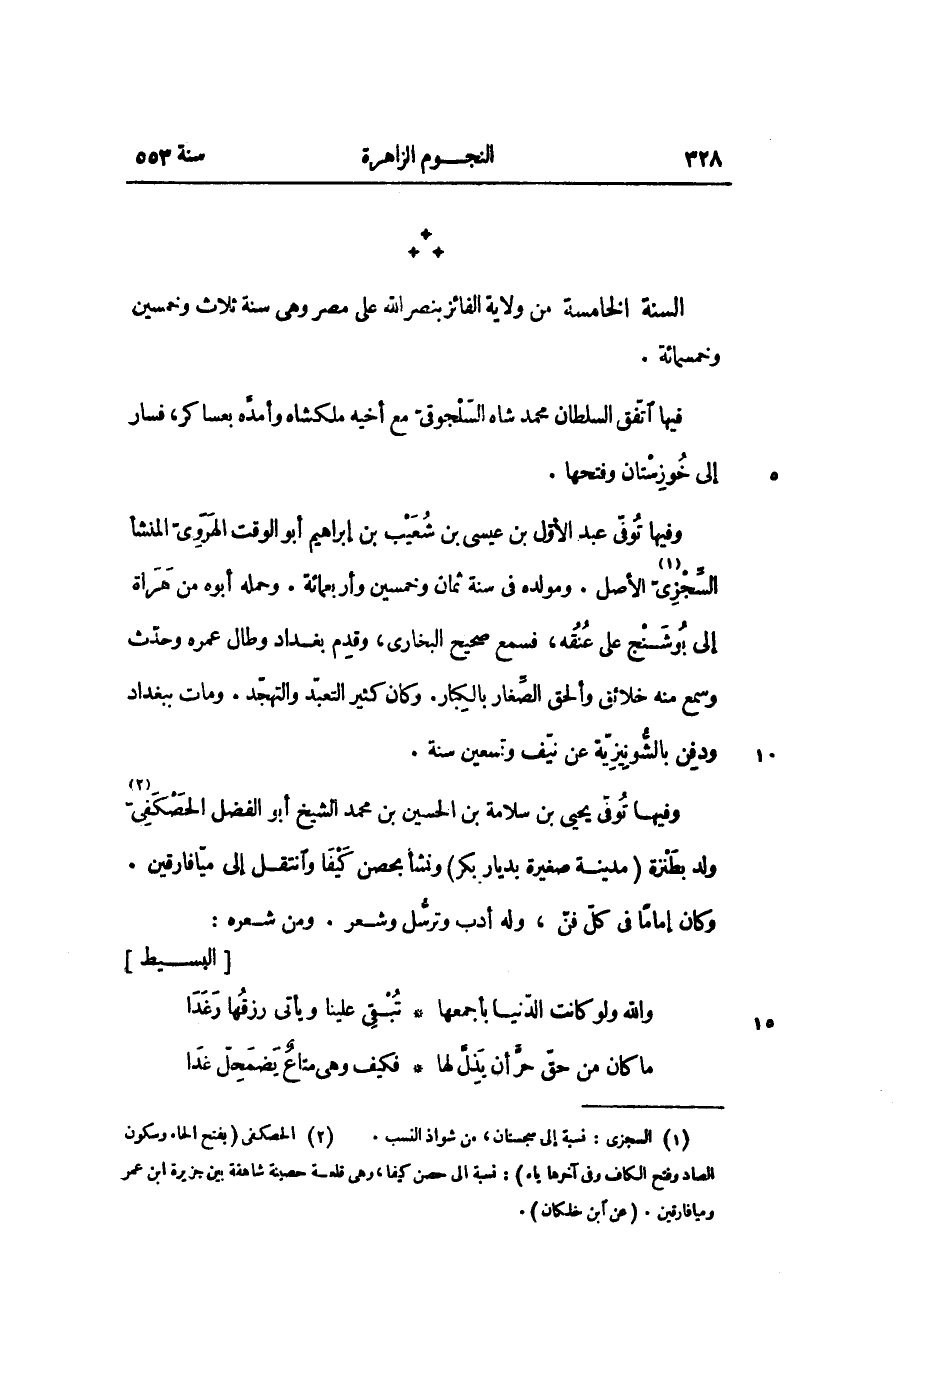 ٣٢٨ النجـــوم الزاهرة سنة ٥٥٣
السنة الخامسة من ولاية الفائز بنصر الله على مصر وهى سنة ثلاث وخمسين
وخمسمائة .
فيها ٱتّفق السلطان محمد شاه السّلْجوقىّ مع أخيه ملكشاه وأمدّه بعساكر، فسار
إلى خُوزِسْتان وفتحها . ٥
وفيها تُوفّى عبد الأوّل بن عيسى بن شُعَيْب بن إبراهيم أبو الوقت الهَرَوِىّ المنشأ
السِّجْزِىّ(١) الأصل . ومولده فى سنة ثمان وخمسين وأربعمائة . وحمله أبوه من هَرَاة
إلى بُوشَـنْج على عُنُقه، فسمع صحيح البخارى، وقدِم بغـداد وطال عمره وحدّث
وسمع منه خلائق وألحق الصِّغار بالكبار. وكان كثير التعبّد والتهجّد . ومات ببغداد
ودفِن بالشُّونِيزِيّة عن نيّف وتسعين سنة . ١٠
وفيهـا تُوفّى يحيى بن سلامة بن الحسين بن محمد الشيخ أبو الفضل الحَصْكَفِىّ(٢)
ولد بطَنْزة ( مدينـة صغيرة بديار بكر ) ونشأ بحصن كَيْفَا وٱنتقـل إلى ميّافارقين .
وكان إمامًا فى كلّ فنّ ، وله أدب وترسُّل وشـعر . ومن شـعره :
[ البســـيط ]
والله ولو كانت الدّنيـا بأجمعها * تُبْـقِى علينا ويأتى رزقُها رَغَدَا ١٥
ما كان من حقّ حرٍّ أن يَذِلَّ لها * فكيف وهى متاعٌ يَضمَحِلّ غدَا
(١) السجزى : نسبة إلى سجستان، من شواذ النسب . (٢) الحصكفى ( بفتح الحاء وسكون
الصاد وفتح الكاف وفى آخرها ياء ) : نسبة الى حصن كيفا، وهى قلعـة حصينة شاهقة بين جزيرة ابن عمر
وميافارقين . ( عن ٱبن خلكان ) .